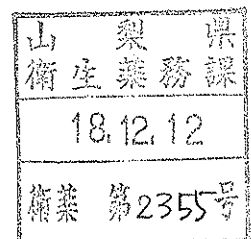 山梨県
衛生薬務課
18.12.12
衛薬 第2355号